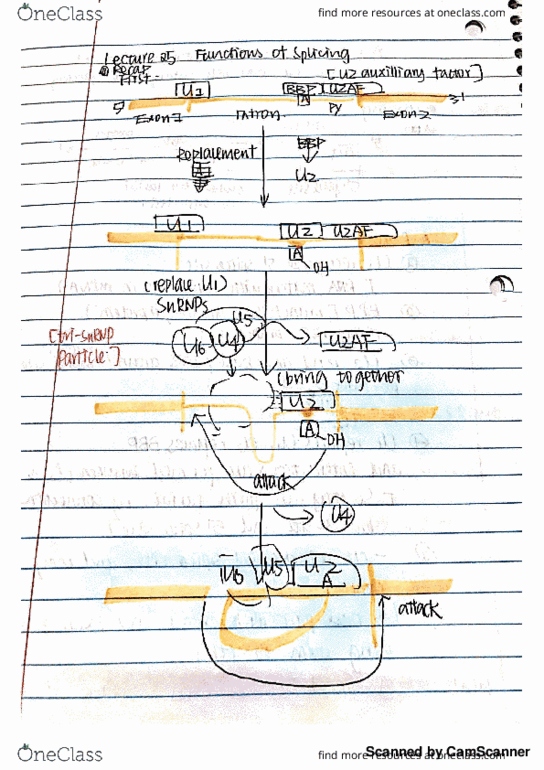 OneClass
find more resources at oneclass.com
Lecture 25 Functions of Splicing
Recap
First
[U2 auxilliary factor]
U1
BBP U2AF
5' A 3'
Exon1 Intron Py Exon2
Replacement BBP
U2
U1 U2 U2AF
A
OH
(replace U1)
SnRNPs
U5
[tri-snRNP
particle]
U6 U4 U2AF
(bring together
U2
A
OH
attack
U4
U6 U5 U2
A
attack
OneClass
find more resources at oneclass.com
Scanned by CamScanner